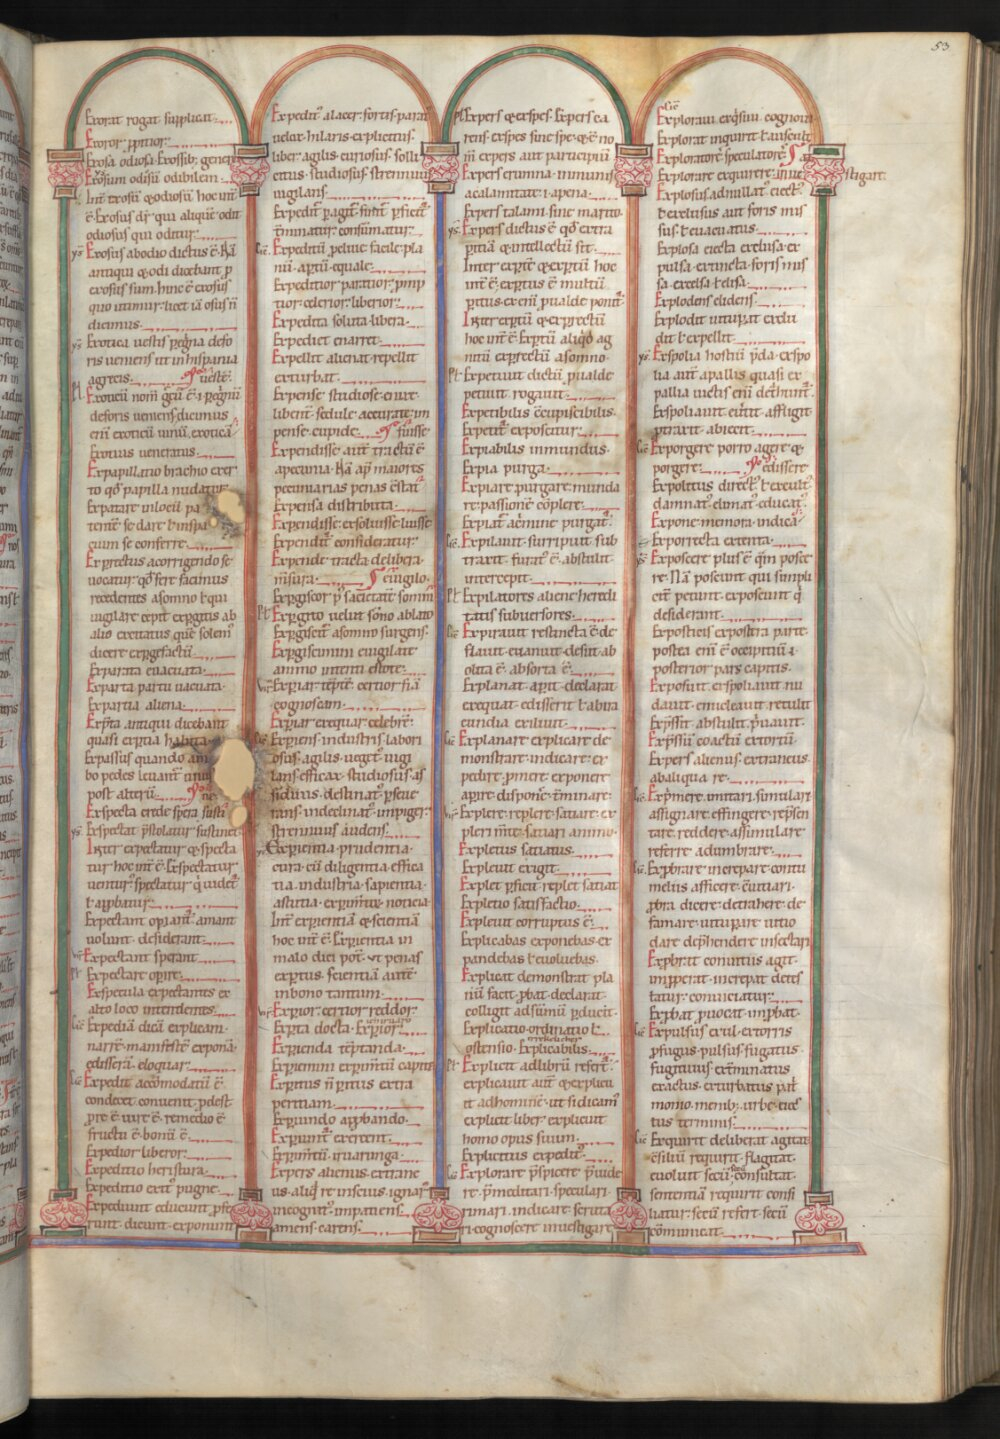 53
Exorat rogat. supplicat.
Exoror. ꝓpitior.
Exosa odiosa. Exossib; generi
Exosum odisū odibilem.
Int̄ exosū. ⁊ odiosū. hoc int̄
ē. Exosus dr̄ qui aliquē odit
odiosus qui oditur.
Exosus abodio dictus ē. Nā
antiqui ⁊ odi dicebant ꝑ
exosus sum. hinc ē exosus
quo utimur. licet iā osus n̄
dicimus.
Exotica uestis ꝑegrīa defo
ris ueniens ut in hispania
agrecis. uestē.
Exoticū nom̄ grecū ē. i. ꝑegrinū
deforis ueniens. dicimus
enī exoticū uinū. exoticā
Exotius ueneratus.
Expapillato brachio exer
to qd̄ papilla nudatur
Expatare inlocū pa
tentē se dare ł inspa
cium se conferre.
Experrectus acorrigendo se
uocatur. qd̄ sere facimus
recedentes asomno ł qui
uigilare cepit expergitus ab
alio excitatus quē solem̄
dicere expgefactū.
Exparata euacuata.
Exparta partu uacuata.
Expartia aliena.
Exp̄ta antiqui dicebant
quasi exꝑtia habita
Expassus quando am
bo pedes leuant̄ unū
post alterū. ne
Expecta crede spera susti
Expectat p̄stolatur sustinet
Inter expectatur ⁊ specta
tur hoc int̄ ē. Exspectatur
uentur. spectatur q̄ uidet̄
ł approbatur.
Expectant opiant̄ amant
uolunt. desiderant.
Expectant sperant.
Expectare opire.
Exspecula expectantes ex
alto loco intendentes.
Expediā dicā explicam
narrē. manifestē exponā
edisserā. eloquar.
Expedit accōmodatū ē.
condecet conuenit. ꝓdest
ꝓre ē. uire ē. remedio ē
fructū ē. bonū ē.
Expedior liberor.
Expeditio heristura.
Expeditio exit̄ pugne.
Expediunt educunt ꝓfe
runt. dicunt. exponunt
Expedit̄ alacer. fortis. parat̄
uelat. hilaris. explicitus.
liber. agilis. curiosus. solli
citus. studiosus. strennuus
uigilans.
Expedit̄ ꝑagit̄ finit̄ ꝑficit̄
t̄minatur. consūmatur.
Expeditū ꝓliue. facile. pla
nū. aptū. equale.
Expeditior paratior. pmp
tior. celerior. liberior.
Expedita soluta. libera.
Expediet enarret.
Expellit alienat. repellit
exturbat.
Expense studiose. ciure.
libent̄. sedule. accurate. im
pense. cupide. fuisse
Expendisse. autē tractū ē
apecunia. Nā ap̄ maiores
pecuniarias penas cōstat̄
Expensa distributa.
Expendisse. exsoluisse. luisse
Expendit̄ consideratur.
Expende tracta. delibera.
m̄sura. euigilo.
Expgiscor p̄ sacietatē somni
Expgito uelut sōno ablato
Expgiscit̄ asomno surgens.
Expgiscimini euigilate
animo intenti estote.
Experiar tēptē. certior fiā
cognoscam.
Experiar exequar. celebrē.
Experiens. industris. labori
osus. agilis. ueget̄. uigi
lans. efficax. studiosus. as
siduus. destinat̄. ꝑseue
rans. indeclinat̄. impiger.
strennuus. audens.
Experientia. prudentia.
cura. cū diligentia. effica
tia. industria. sapientia.
astutia. exꝑimtū. noticia.
Int̄ exꝑientiā. ⁊ scientiā
hoc int̄ ē. Exꝑientia in
malo dici pot̄. ut penas
exꝑtus. scientiā autē.
inbono tantum.
Experior. certior reddor.
Experta docta. Experior.
Experienda tēptanda.
Experimini exꝑimtū capite
Expitus n̄ ꝑitus extra
peritiam.
Expiundo approbando.
Expiunt̄ exercent.
Expimtū. quarunga.
Expers alienus. extrane
us. aliq̄ re inscius. ignar̄
incognit̄. impatiens.
amens. carens.
Expers ⁊ exspes. Expers ca
rens. exspes sine spe. ⁊ ē no
m̄ expers aut participiū
Expers erumna inmunis
acalamitate. i. apena.
Expers talami. sine marito.
Expers dictus ē. qd̄ extra
ꝑitiā ⁊ intellectū sit.
Inter exꝑtē ⁊ exꝑtiū hoc
int̄ ē. exꝑtus ē multū
ꝑitus. ex enī ꝓualde ponit̄.
Inter exꝑtiū ⁊ exꝑrectū
hoc int̄ ē. Exꝑtū aliqd̄ ag
nitū exꝑrectū asomno.
Expetiuit dictū ꝓualde
petiuit. rogauit.
Expetibilis. cōcupiscibilis.
Expetit̄ exposcitur.
Expiabilis inmundus.
Expia purga.
Expiare. purgare. munda
re. passionē cōplere.
Expiat̄ acrimine purgat̄.
Expilauit. surripuit. sub
traxit. furat̄ ē. abstulit
intercepit.
Expilatores aliene heredi
tatis subuersores.
Expirauit restincta ē. de
flauit. euanuit. desiit. ab
olita ē. absorta ē.
Explanat. apit. declarat
exequat. edisserit. ł abira
cundia exiluit.
Explanare explicare. de
monstrare. indicare. ex
pedire. pmere. exponere
apire. disponere. t̄minare.
Explere. replere. satiare. ex
pleri mite. satiari animo.
Expletus satiatus.
Expleuit exigit.
Explet ꝑficit. replet. satiat
Expletio satisfactio.
Expleuit corruptus ē.
Explicabas exponebas. ex
pandebas. ł euoluebas.
Explicat demonstrat. pla
nū facit. ꝓbat. declarat.
colligit. adsūmū ꝑducit.
Explicatio ordinatio. ł
ostensio. Explicabilis.
Explicit adlibrū refert̄.
explicauit aut̄ ⁊ explicu
it adhominē. ut sidicam̄
explicit liber. explicuit
homo opus suum.
Explicitus expedit̄.
Explorare. ꝑspicere. ꝓuide
re. p̄meditari. speculari.
rimari. indicare. scruta
ri. cognoscere. inuestigare
Exploraui. exq̄siui. cognoui
Explorat inquirit. ł auscult̄
Exploratores speculatores.
Explorare exquirere. inue
stigare.
Explosus. adnullat̄. eiect̄.
ł exclusus. aut foris mis
sus. ł euacuatus.
Explosa. eiecta. exclusa. ex
pulsa. extincta. foris mis
sa. excelsa. ł elisa.
Explodens elidens.
Explodit. uituꝑat. exclu
dit. ł expellit.
Exspolia hostiū p̄da. exspo
lia aut̄ apallis quasi ex
pallia uictis enī dethunt̄.
Exspoliauit euertit. affligit
ꝓtraxit. abiecit.
Exporgere porro agere. ⁊
porgere. edissere
Expolitus. direct̄. ł excult̄.
damnat̄. elimat̄. educat̄.
Expone memora. indica.
Exporrecta extenta.
Exposcere plus ē. qm̄ posce
re. Nā poscunt qui simpli
cit̄ petunt. exposcunt q̄
desiderant.
Exposticiis expostra parte.
postea enī ē occipitiū. i.
posterior pars capitis.
Exposuit. exspoliauit. nu
dauit. enucleauit. retulit
Exp̄ssit. abstulit. ꝓuauit.
Exp̄ssiū coactū. extortū.
Expers alienus. extraneus
abaliqua re.
Exp̄mere. imitari. simulari.
assignare. effingere. rep̄sen
tare. reddere. assimulare.
referre. adumbrare.
Exꝓbrare. increpare. contu
meliis afficere. cūuitiari.
ꝓbra dicere. detrahere. de
famare. uituꝑare. uitio
dare. deprehendere. insectari
Exꝓbrat conuitiis agit.
imꝓperat. increpat. detes
tatur. conuiciatur.
Exꝓbat ꝓuocat. imꝓbat.
Expulsus. exul. extorris
ꝓfugus. pulsus. fugatus.
fugitiuus. ext̄minatus
exactus. exturbatus. pat̄
monio. memb;. urbe. eiec
tus terminis.
Exquirit. deliberat. agitat
cōsiliū requirit. flagitat.
euoluit. secū. consultat.
sententiā requirit. consi
liatur. secū refert. secū
cōmunicat.